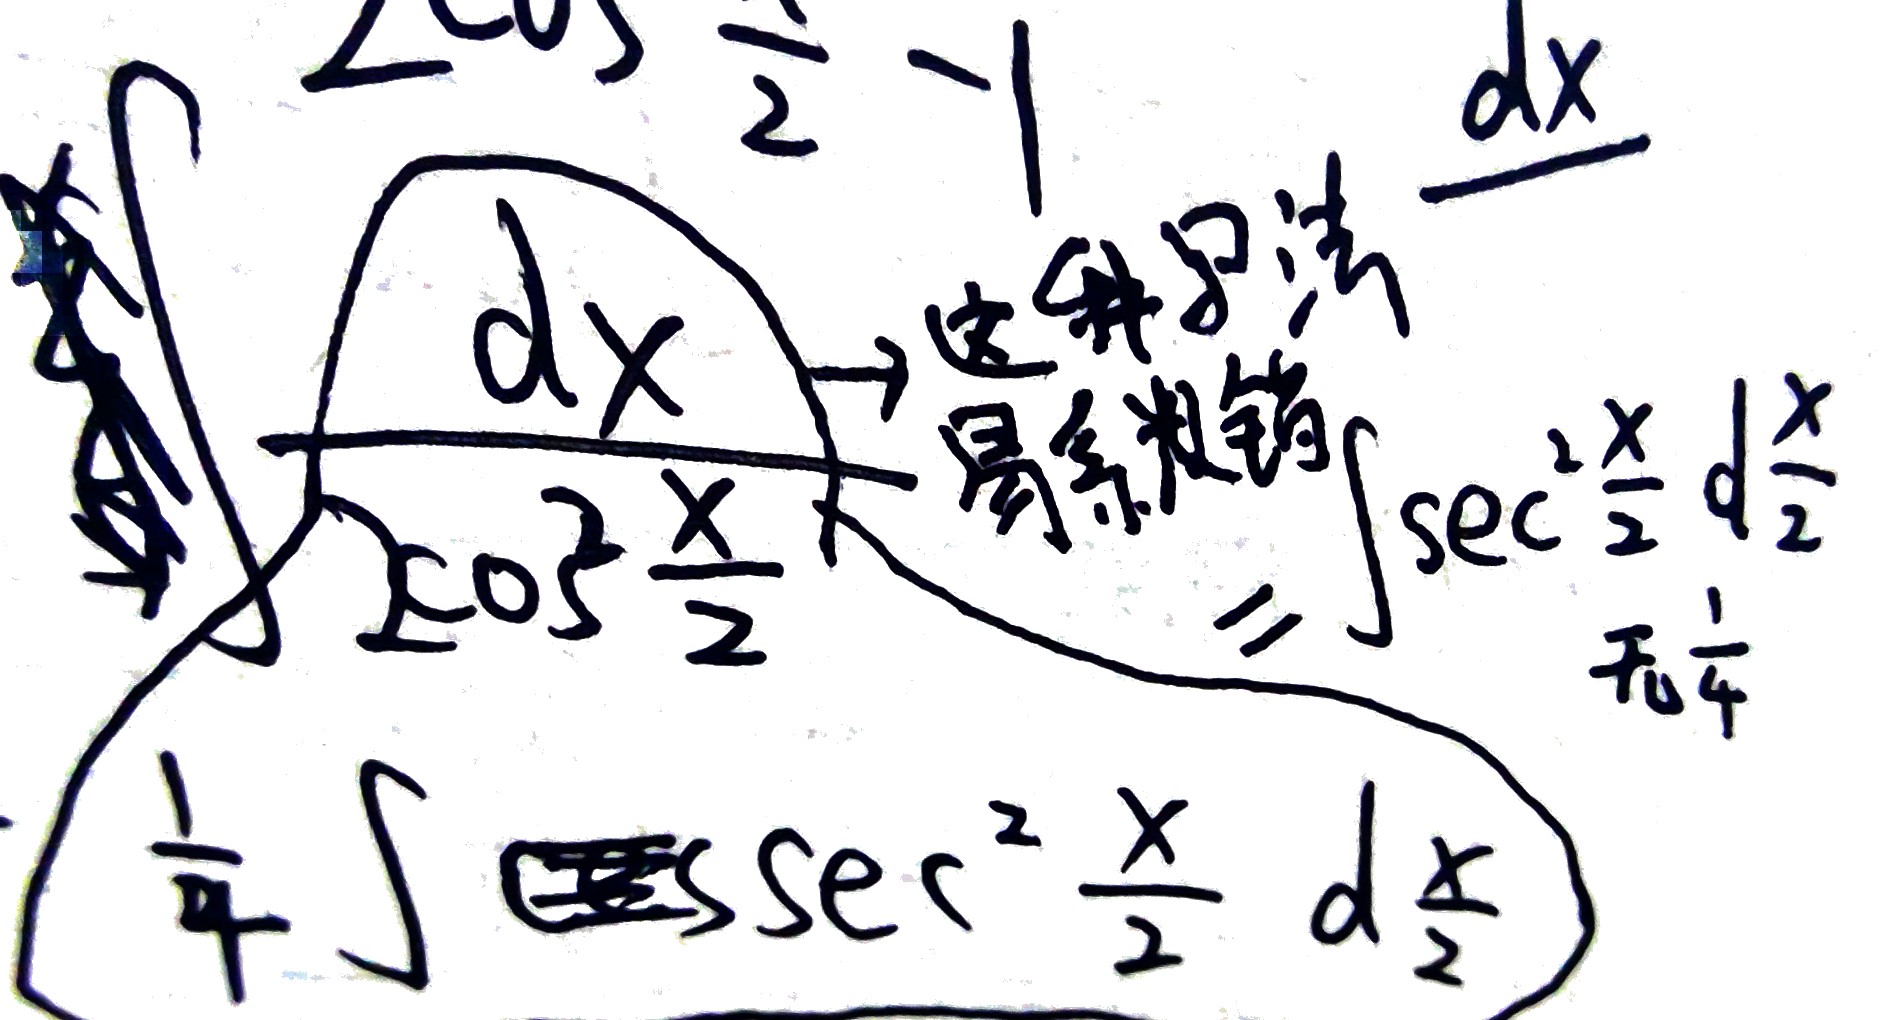 2cos x/2 - 1
dx
∫ dx / 2cos² x/2
→ 这种写法
易系数错
= ∫ sec² x/2 d x/2
无 1/4
1/4 ∫ sec² x/2 d x/2